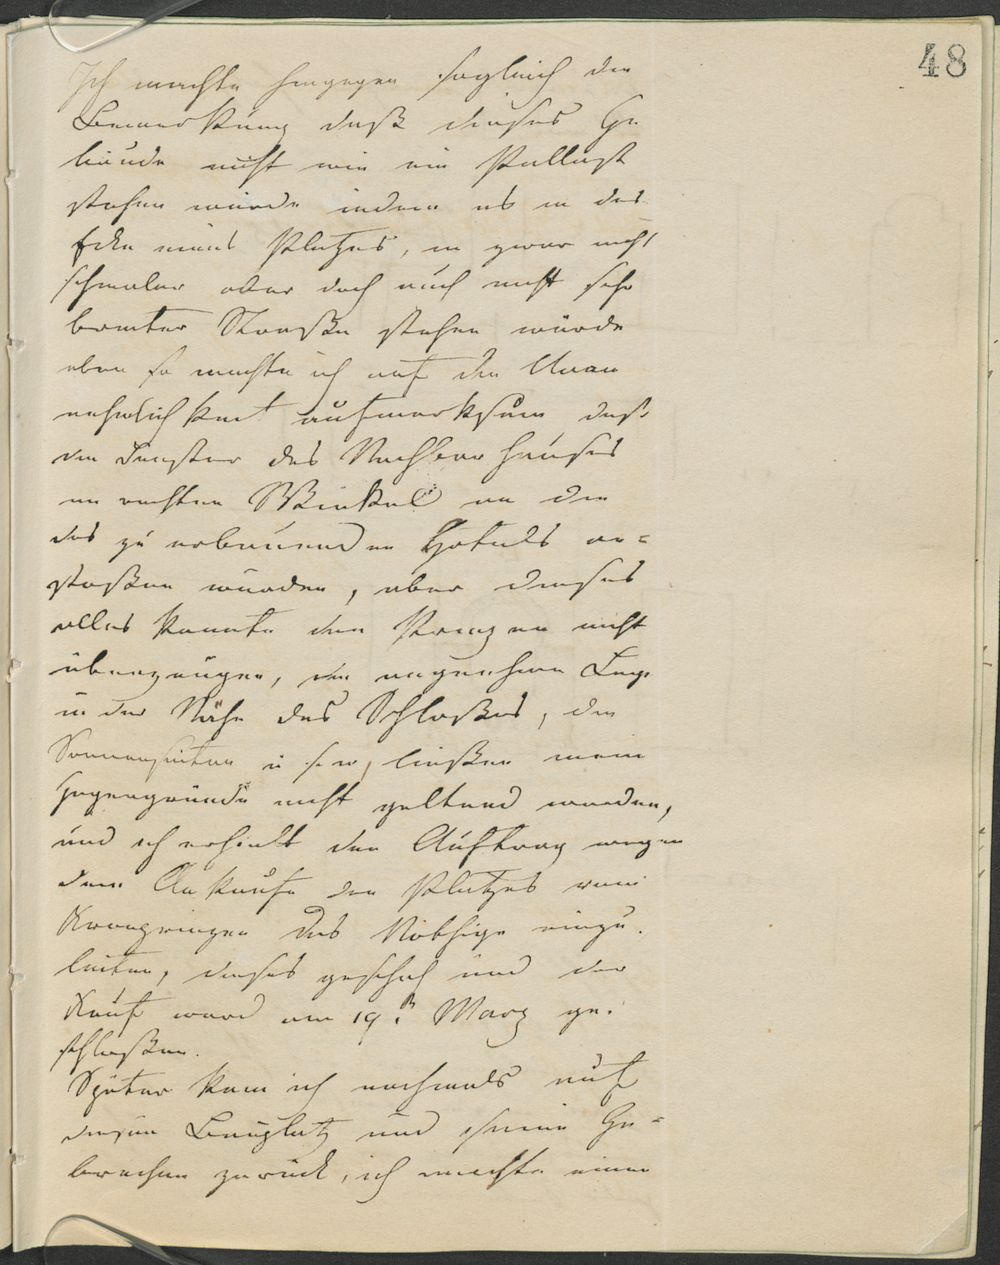 48
Ich machte hingegen sogleich die
Bemerkung daß dieses Ge
bäude nicht wie ein Pallast
stehen würde indem es in der
Ecke eines Platzes, in zwar nicht
schmaler aber doch auch nicht sehr
breiter Straße stehen würde
eben so machte ich auf die Unan
nehmlichkeit aufmerksam daß
die Fenster des Nachbarhauses
im rechten Winkel an die
des zu erbauenden Hotels an=
stoßen würden, aber dieses
alles konnte den Prinzen nicht
überzeugen, die angenehme Lage
in der Nähe des Schloßes, die
Sonnenseiten u s w, ließen mein
Gegengründe nicht geltend werden,
und ich erhielt den Auftrag wegen
dem Ankaufe des Platzes vom
das Nöthige einzu
leiten, dieses geschah und der
Kauf ward am 19t Marz ge
schloßen.
Später kam ich nochmals auf
diesen Bauplatz und seine Ge=
brechen zurück, ich machte einen